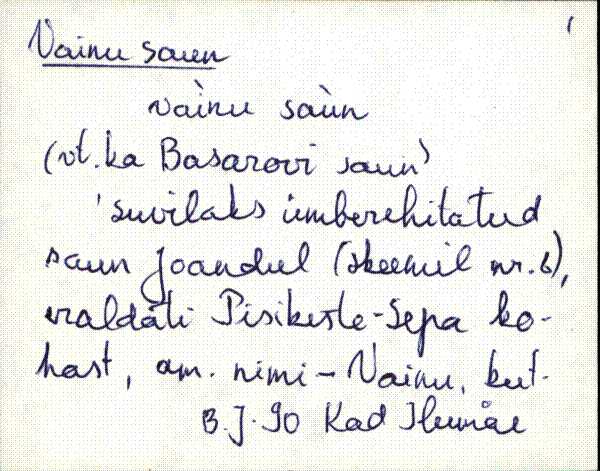 Vainu saun
vàinu saùn
(vt. ka Basarovi saun)
'suvilaks ümberehitatud
saun Joandul (skeemil nr. 6),
eraldati Pisikeste-Sepa ko-
hast, am. nimi - Vainu, kut.
B.J. 90 Kad Ilumäe